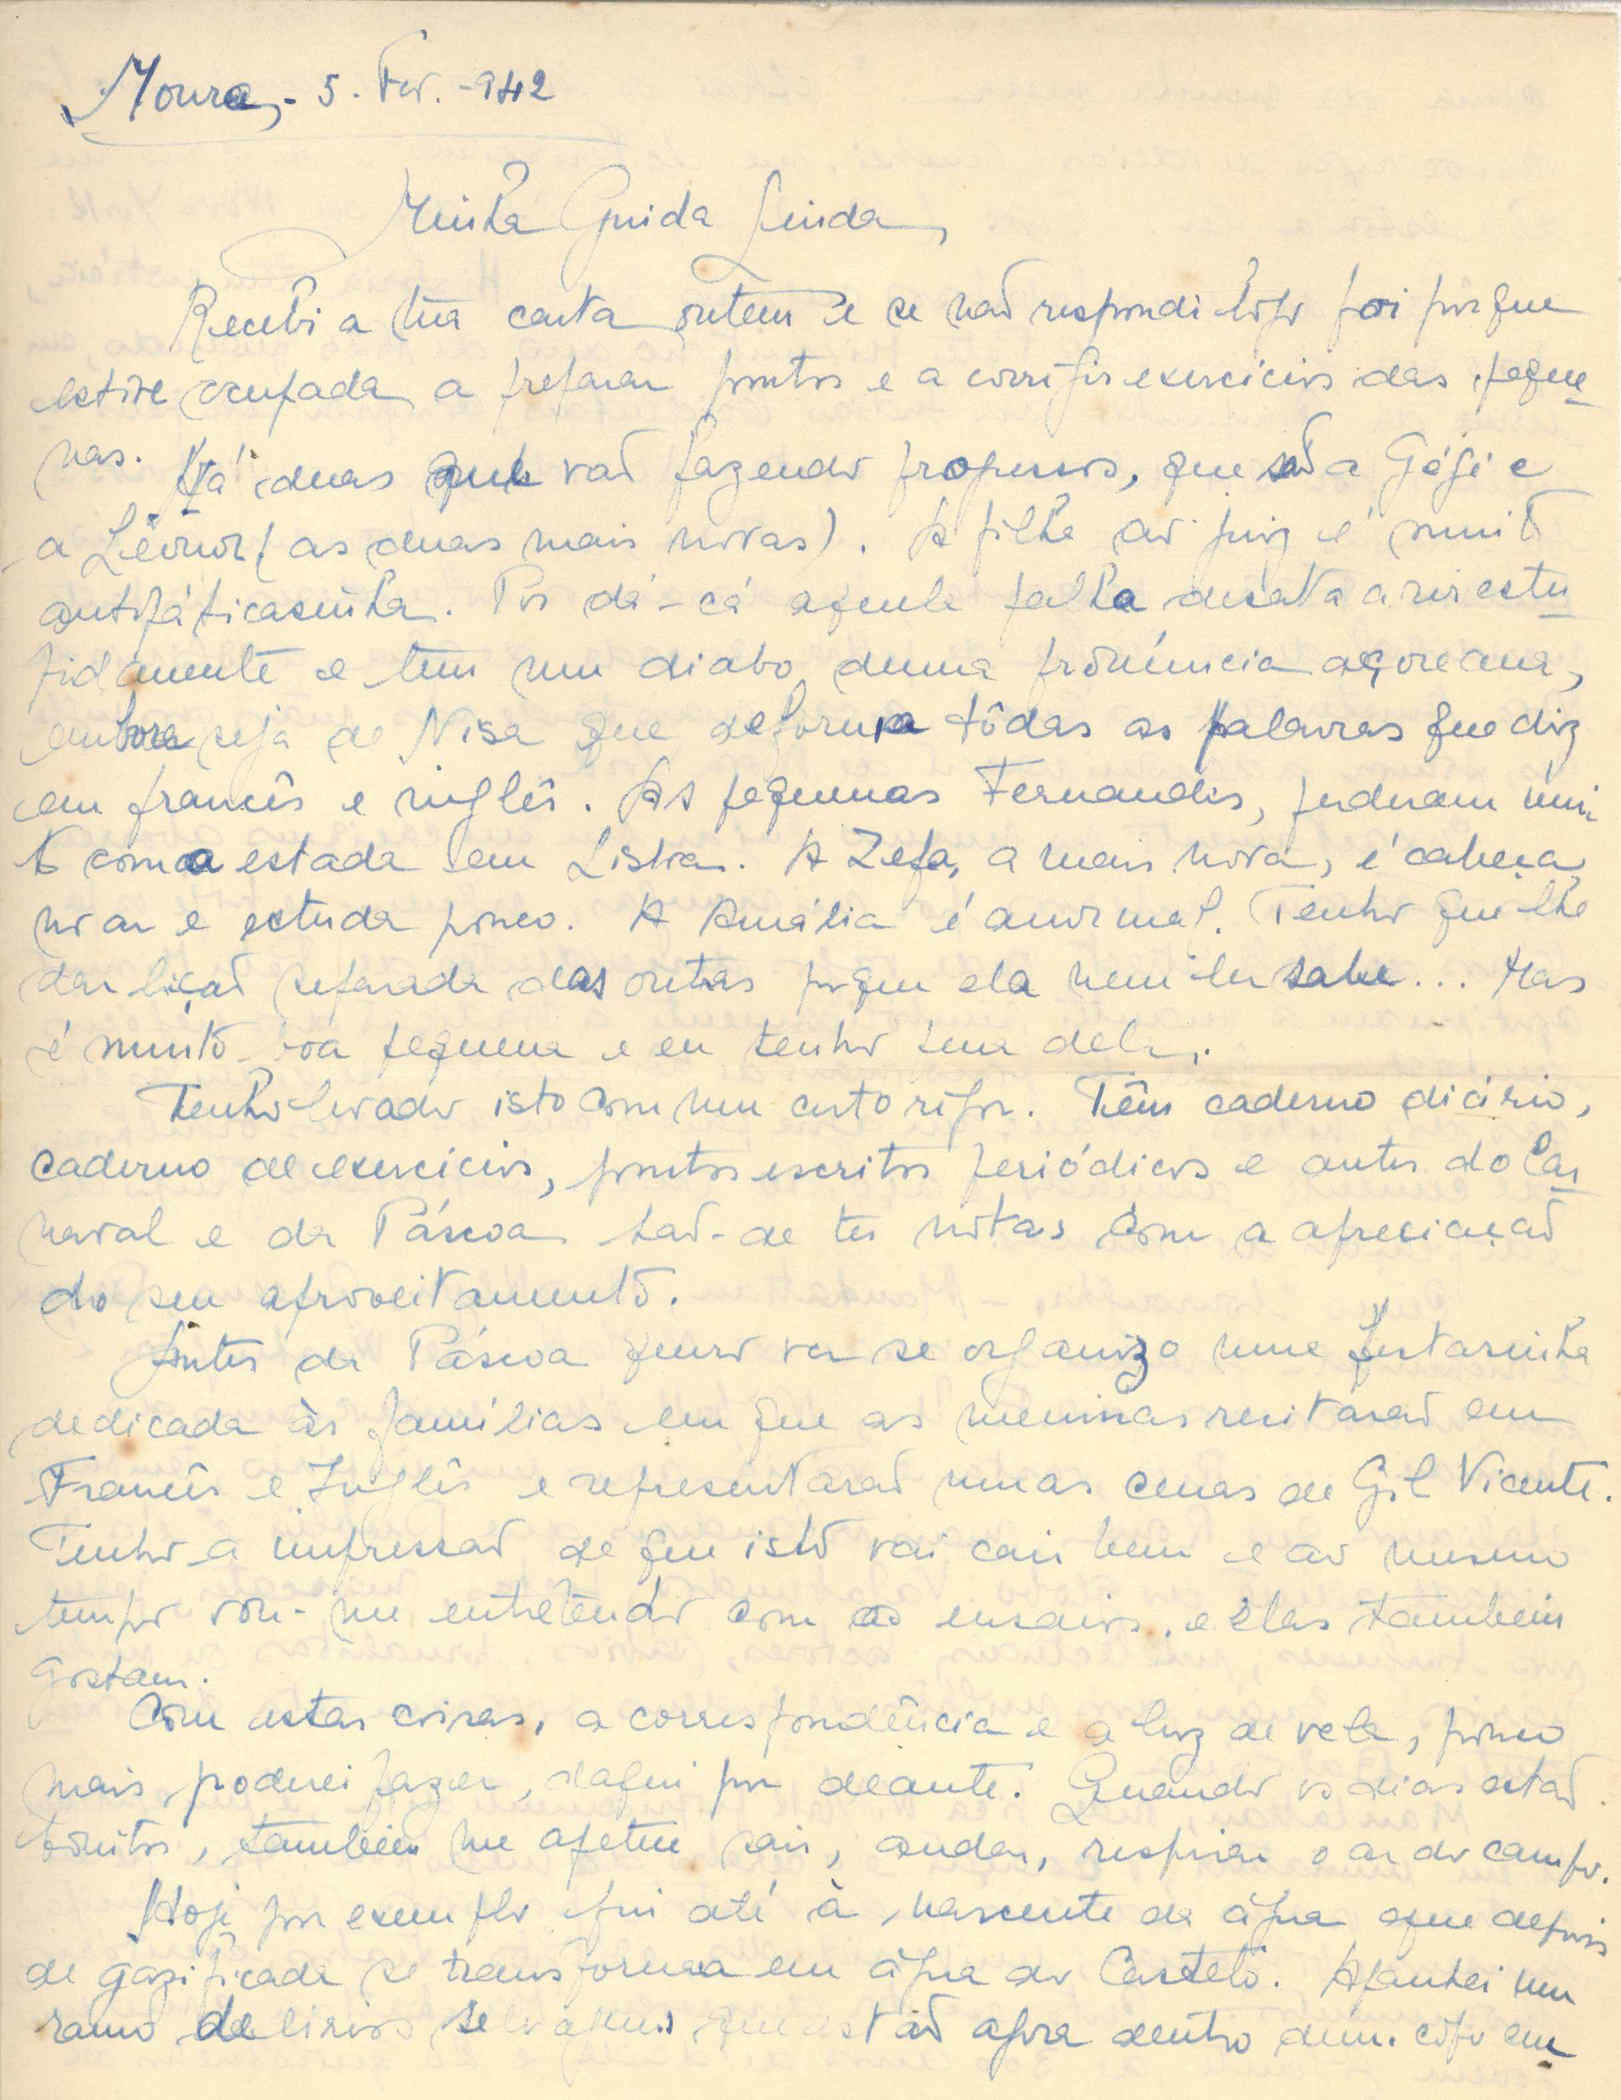 Moura, - 5. Fev. - 942
Minha Guida Linda,
Recebi a tua carta ontem e se não respondi logo foi porque
estive ocupada a preparar pontos e a corrigir exercícios das peque
nas. Há duas que vão fazendo progressos, que são a Gégé e
a Leonor (as duas mais novas). A filha do juiz é muito
antipáticasinha. Por dá-cá aquela palha desata a rir estu
pidamente e tem um diabo duma pronúncia açoreana,
embora seja de Nisa que deforma tôdas as palavras que diz
em francês e inglês. As pequenas Fernandes, perderam mui
to com a estada em Lisboa. A Zefa, a mais nova, é cabeça
no ar e estuda pouco. A Amália é anormal. Tenho que lhe
dar lição separada das outras porque ela nem ler sabe... Mas
é muito boa pequena e eu tenho pena dela.
Tenho levado isto com um certo rigor. Têm caderno diário,
caderno de exercícios, pontos escritos periódicos e antes do Car
naval e da Páscoa hão-de ter notas com a apreciação
do seu aproveitamento.
Antes da Páscoa quero ver se organizo uma festasinha
dedicada às famílias em que as meninas recitarão em
Francês e Inglês e representarão umas cenas de Gil Vicente.
Tenho a impressão de que isto vai cair bem e ao mesmo
tempo vou-me entretendo com os ensaios. e elas tambem
gostam.
Com estas coisas, a correspondência e a luz de vela, pouco
mais poderei fazer, daqui por deante. Quando os dias estão
bonitos, tambem me apetece sair, andar, respirar o ar do campo.
Hoje, por exemplo fui até à nascente da água que depois
de gazificada se transforma em água do Castelo. Apanhei um
ramo de lirios selvagens que estão agora dentro dum copo em